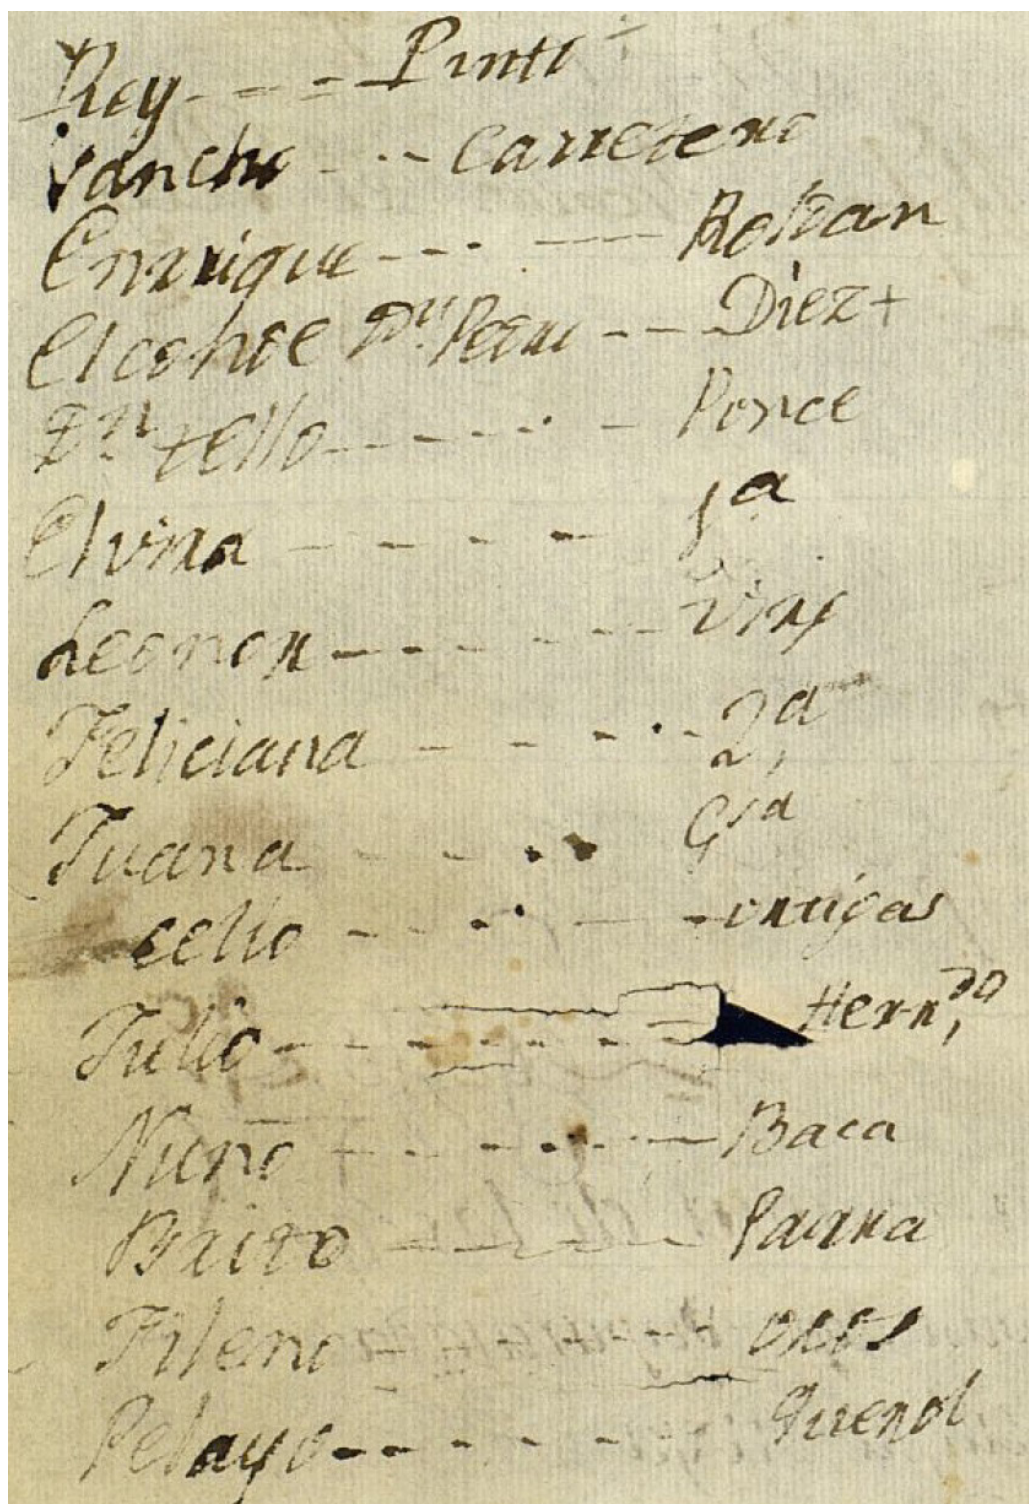 Rey - - - - Pinto
Sancho - - - Carretero
Enrrique - - - - Roldan
El conde Dn. Pedro - - - Diez+
Dn. tello - - - - - Ponce
Elvira - - - - 1a
Leonor - - - - - -
Feliciana - - - - - 2a
Juana - - - - Gra
celio - - - - - ortigas
Julio - - - - - - Herndo
Nuño - - - - - - Baca
Brito - - - - Parra
Fileno - - - - - oros
Pelayo - - - - - - Querol